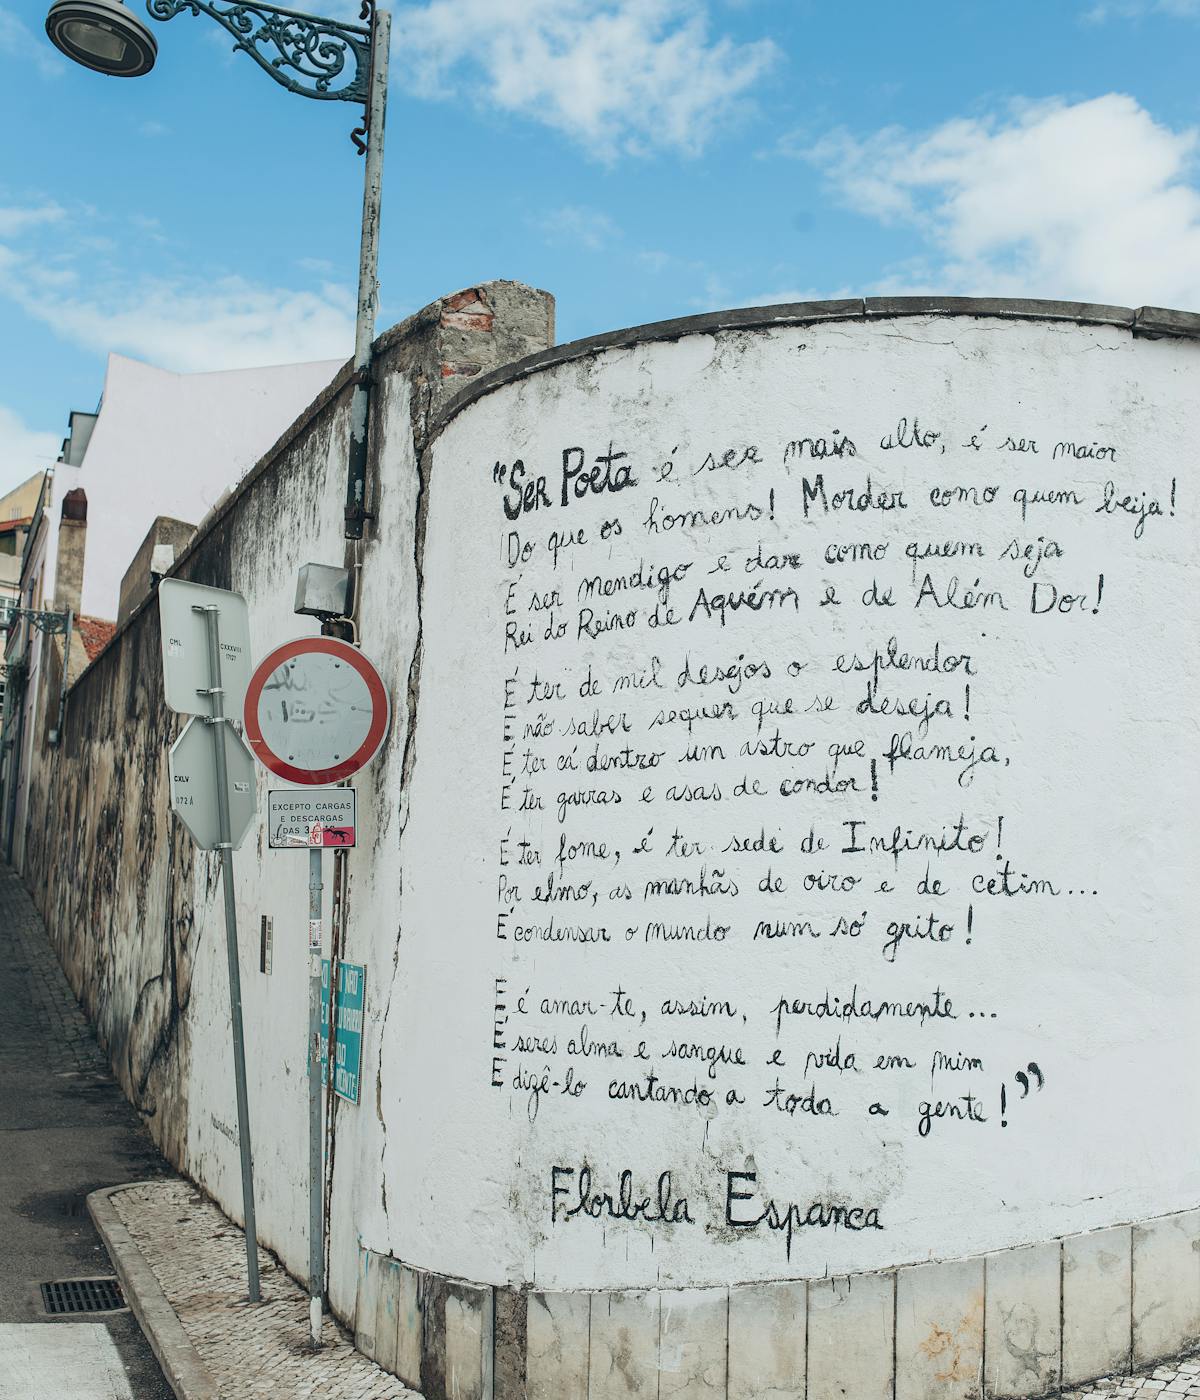 "Ser Poeta é ser mais alto, é ser maior
Do que os homens! Morder como quem beija!
É ser mendigo e dar como quem seja
Rei do Reino de Aquém e de Além Dor!
É ter de mil desejos o esplendor
E não saber sequer que se deseja!
É ter cá dentro um astro que flameja,
É ter garras e asas de condor!
É ter fome, é ter sede de Infinito!
Por elmo, as manhãs de oiro e de cetim...
É condensar o mundo num só grito!
E é amar-te, assim, perdidamente...
É seres alma e sangue e vida em mim
E dizê-lo cantando a toda a gente!"
Florbela Espanca
CML
CXXXVIII
1707
CXLV
072 A
EXCEPTO CARGAS
E DESCARGAS
DAS
NÃO